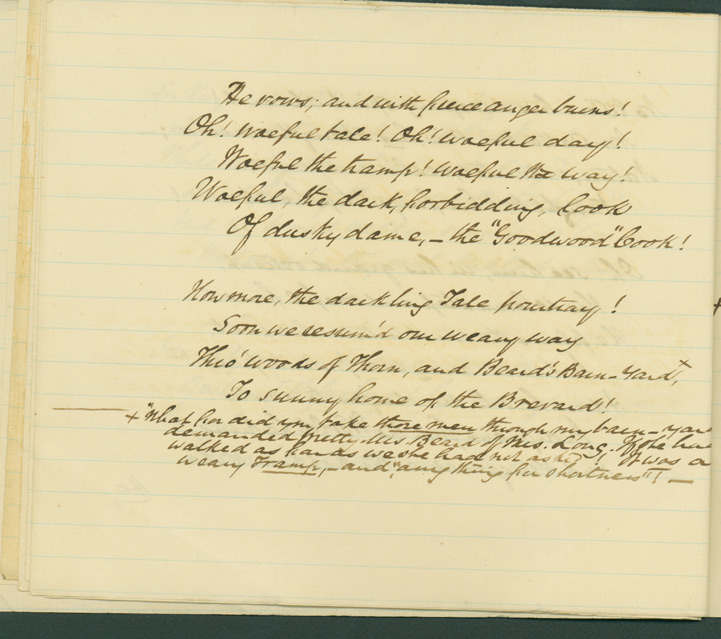 He vows; and with fierce anger burns!
Oh! Woeful tale! Oh! woeful day!
Woeful the tramp! woeful the way!
Woeful, the dark, forbidding, look
Of dusky dame, – the "Goodwood" Cook!
Now more, the darkling Tale pourtray!
Soon we resum'd our weary way
Thro' woods of Thorn, and Beard's Barn-Yard+,
To sunny home of the Brevard!
+ "What for did you take those men through my barn-yard
demanded pretty Mrs Beard of Mrs. Long. If she had
walked as far as we she had not asked! It was a
weary Tramp, – and "any thing for shortness"! –